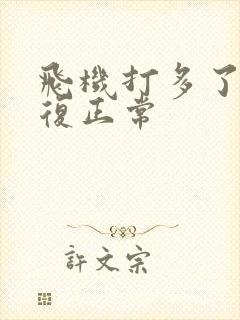 飛機打多了
復正常
許文宗